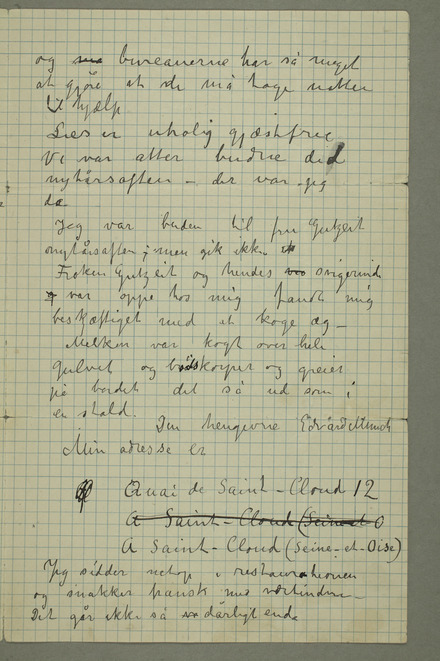 og bureauerne har så meget
at gjøre at de må tage natten
til hjælp
Lies er urolig gjæstfrie
Vi var atter budne did
nytårsaften – der var jeg
da
Jeg var buden til fru Gutzeit
nytårsaften; men gik ikke
Frøken Gutzeit og hendes svigerinde
var oppe hos mig fandt mig
beskjæftiget med at koge æg –
Melken var kogt over hele
gulvet og brødskorper og greier
på bordet det så ud som i
en stald.
Din hengivne Edvard Munch
Min adresse er
Quai de Saint-Cloud 12
A Saint-Cloud (Seine et O
A Saint-Cloud (Seine-et-Oise)
Jeg sidder netop i restaurationen
og snakker fransk med værtinden –
Det går ikke så dårligt endda